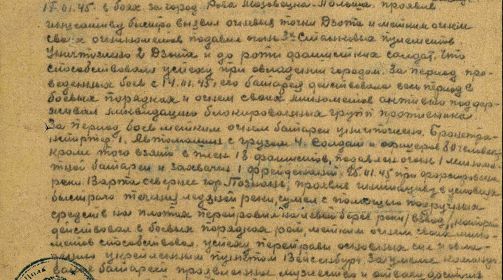 17.01.45 в боях за город Рава Мазовецка Польша, проявив
инициативу быстро выделил огневые точки Дзота и метким огнем
своих минометов подавил огонь 3х станковых пулеметов
Уничтожено 2 Дзота и до роты фашистских солдат. Что
способствовало успеху при овладении городом. За период про-
веденных боев с 14.01.45, его батарея действовала весь период в
боевых порядках и огнем своих минометов активно поддер-
живал ликвидацию блокированных групп противника
За период боев метким огнем батареи уничтожено, бронетран-
спортер 1, Автомашин с грузом 4, Солдат и офицеров 80 человек
кроме того взято в плен 18 фашистов, подавлен огонь 1 миномет-
ной батареи и захвачен 1 25.01.45 при форсировании
реки Варта севернее гор. Познань, проявив инициативу в условиях
быстрого течения ледяной реки, сумел с помощью подручных
средств на плотах переправить на левый берег реки взвод, который
действовал в боевых порядках рот, метким огнем своих мино-
метов способствовал успеху переправы основных сил и овла-
дению укрепленным пунктом Вейсенбург. За умелое командо-
вание батареей проявленные мужество и отвагу достоин